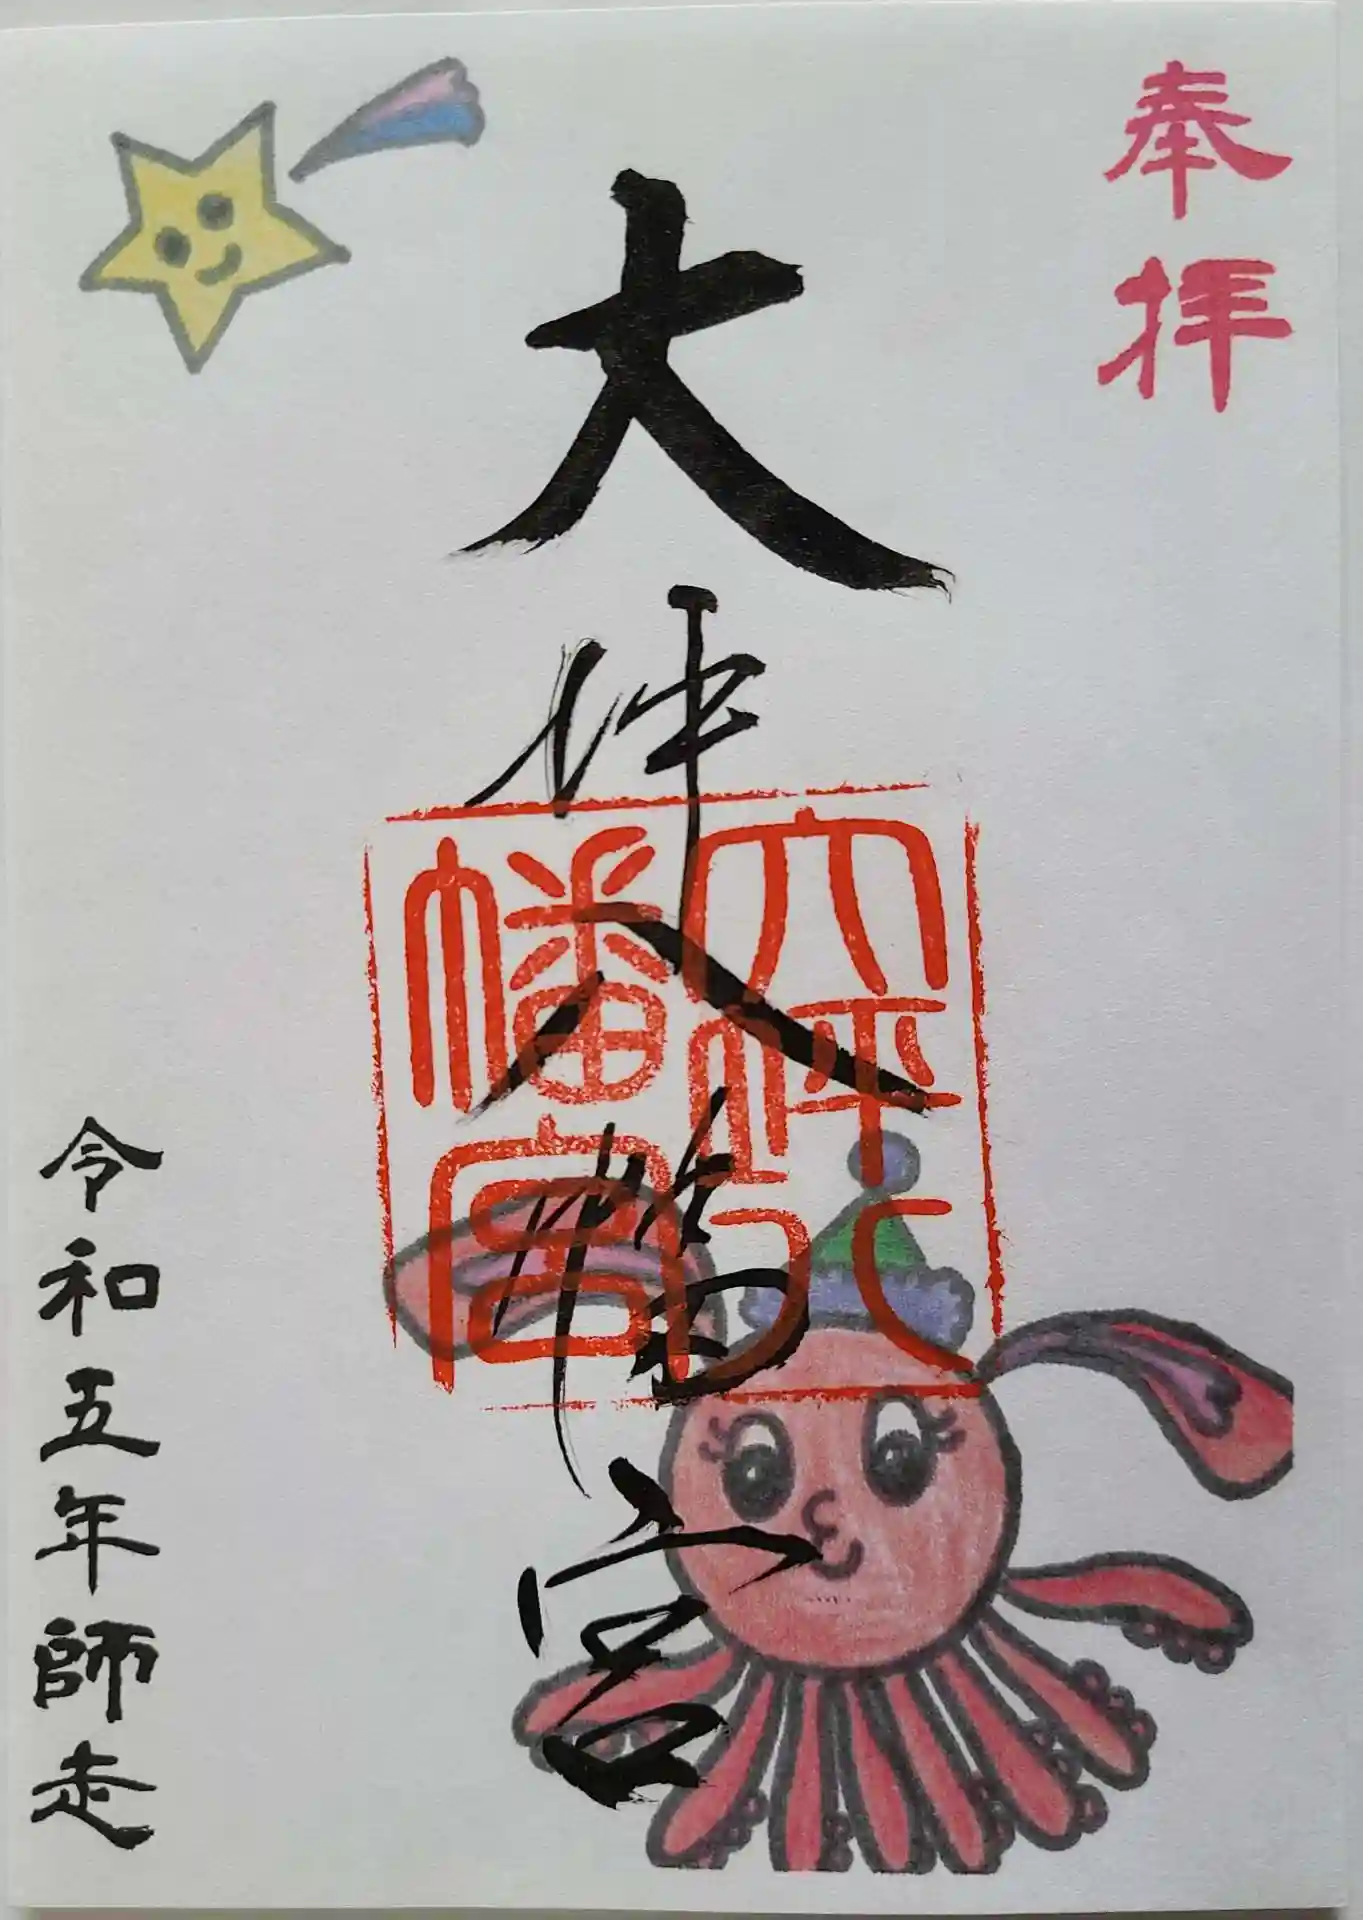 奉拝
大坪八幡宮
大坪八幡宮
令和五年師走